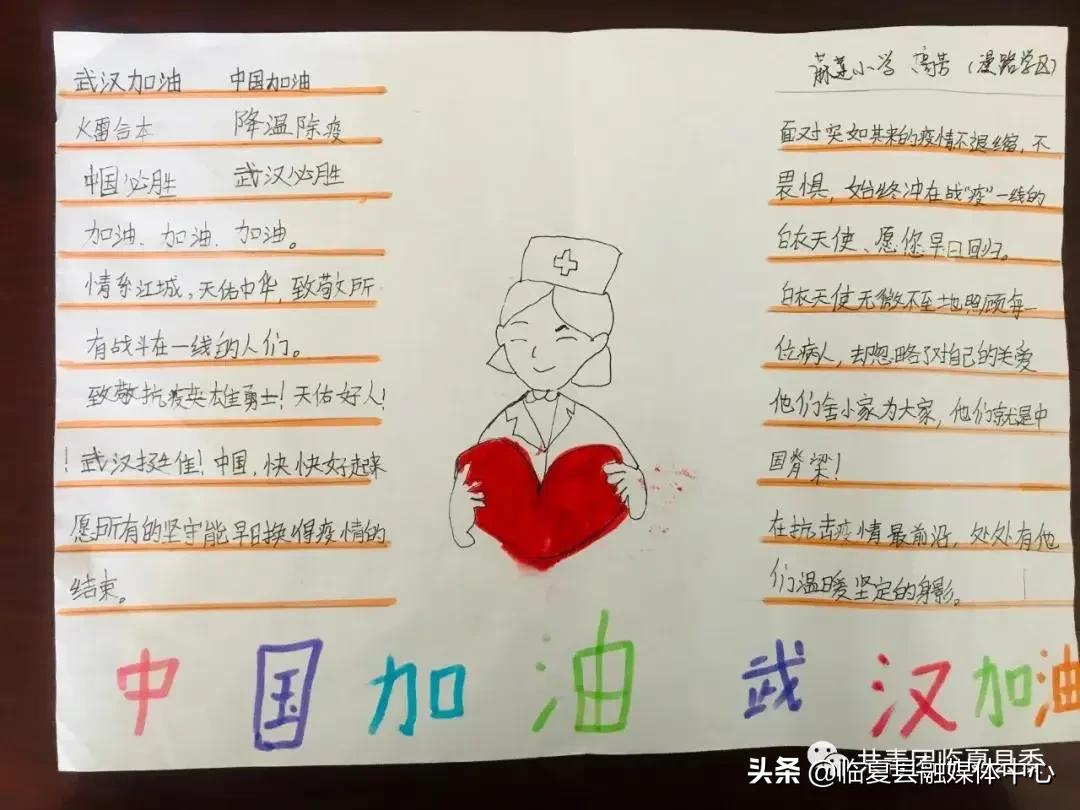 武汉加油 中国加油
火雷合本 降温除疫
中国必胜 武汉必胜
加油、加油、加油。
情系江城,天佑中华,致敬所
有战斗在一线的人们。
致敬抗疫英雄勇士!天佑好人!
!武汉挺住!中国,快快好起来
愿所有的坚守能早日换得疫情的
结束。
小学 (漫路学区)
面对突如其来的疫情不退缩,不
畏惧,始终冲在战“疫”一线的
白衣天使、愿您早日回归。
白衣天使无微不至地照顾每一
位病人,却忽略了对自己的关爱
他们舍小家为大家,他们就是中
国脊梁!
在抗击疫情最前沿,处处有他
们温暖坚定的身影。
中国加油 武汉加油
共青团临夏县委
头条 @临夏县融媒体中心